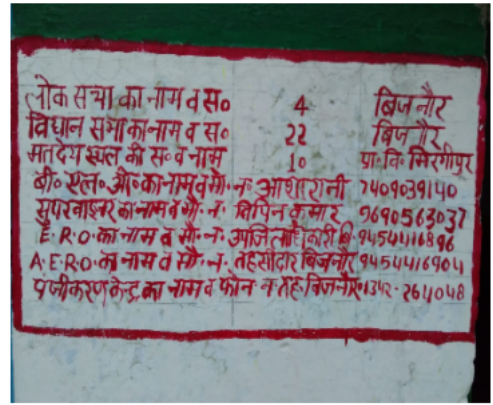 लोक सभा का नाम व स० 4 बिजनौर
विधान सभा का नाम व स० 22 बिजनौर
मतदेय स्थल की स० व नाम 10 प्रा. वि. मिरगीपुर
बी० एल० ओ० का नाम व मो० न० आशारानी 7409039140
सुपरवाइजर का नाम व मो. न. विपिन कुमार 9690563037
E.R.O. का नाम व मो. न. उपजिलाधिकारी बि. 9454416896
A.E.R.O. का नाम व मो. न. तहसीदार बिजनौर 9454416904
पंजीकरण केन्द्र का नाम व फोन न. तह. बिजनौर. 1342-264048